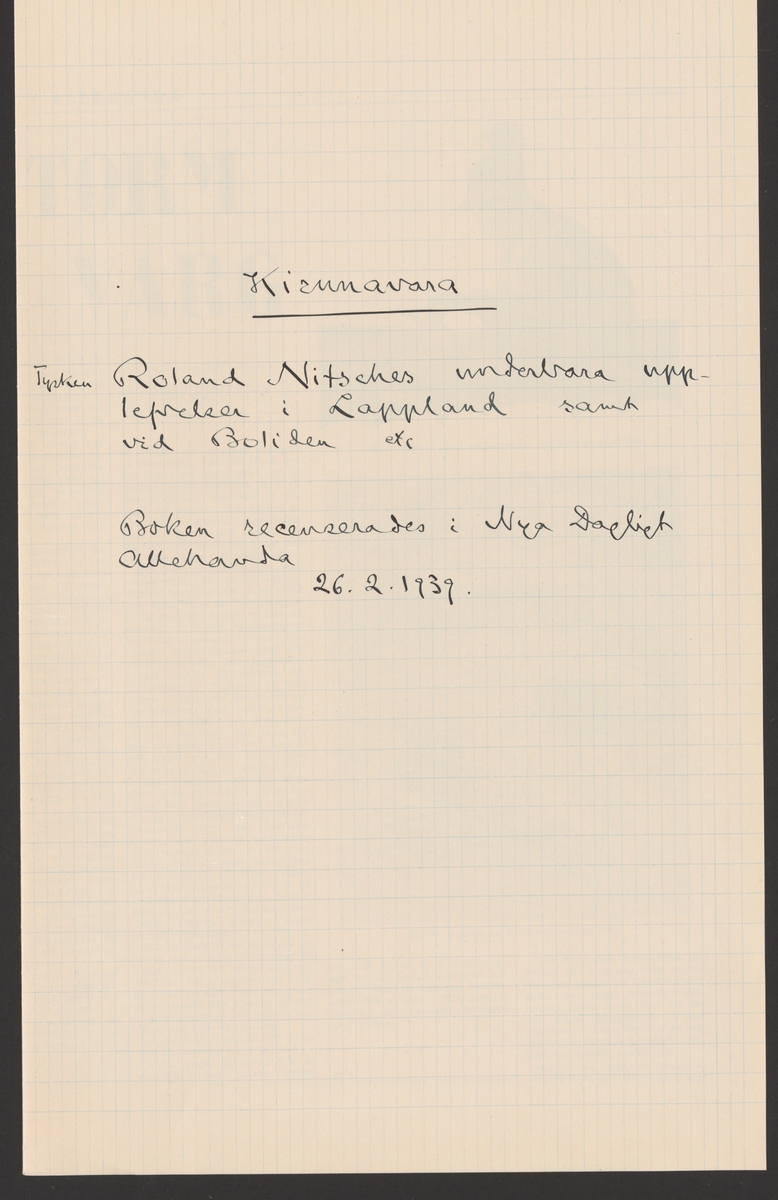 Kirunavara
Tysken Roland Nitsches underbara upp-
levelser i Lappland samt
vid Boliden etc
Boken recenserades i Nya Dagligt
Allehanda
26. 2. 1939.